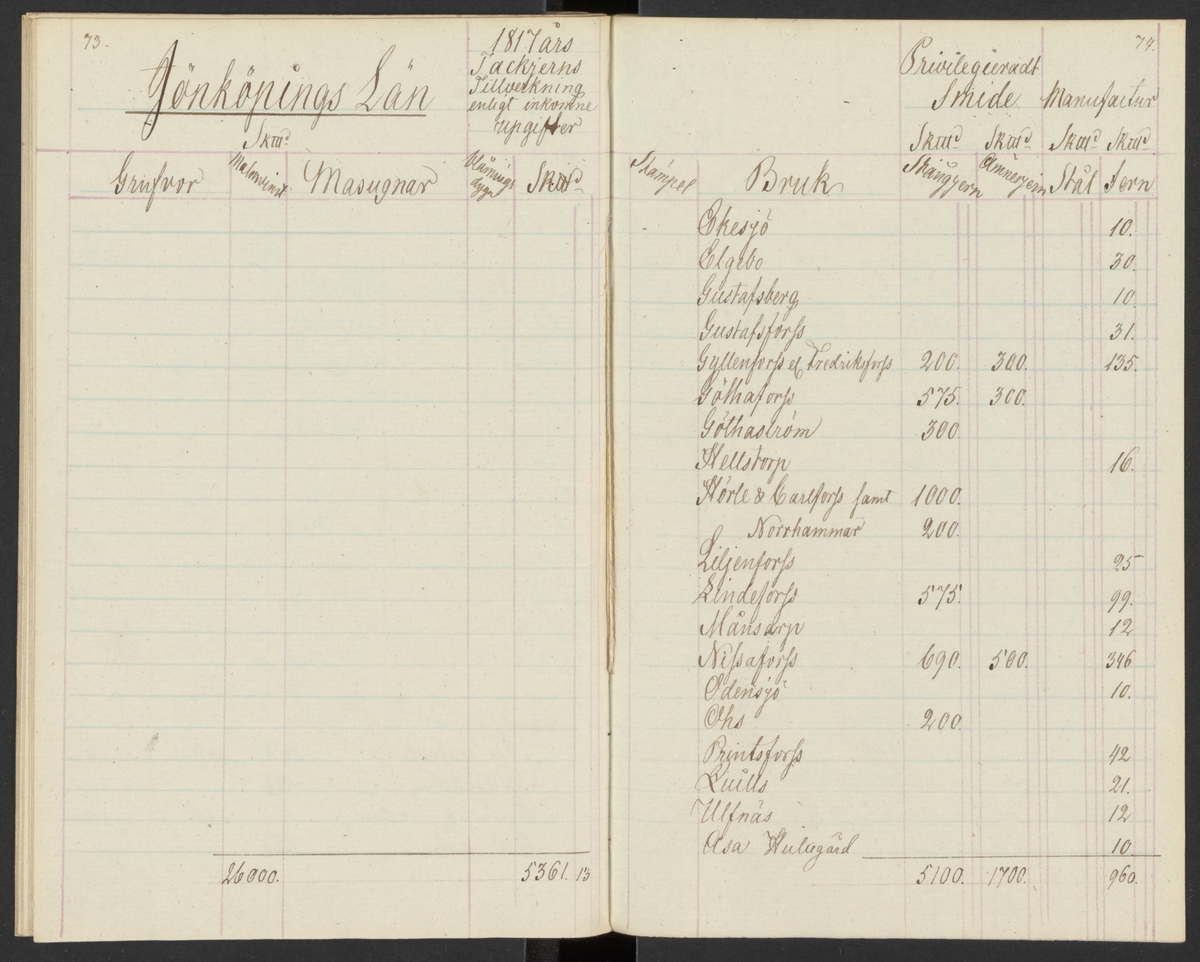 73.
Jönköpings Län
1817 års
Tackjerns
Tillverkning
enligt inkomne
upgifter
Skttd
Grufvor Malmvinst Masugnar Blåsnings dygn Skttd
26000. 5361. 13
74.
Privilegieradt
Smide Manufactur
Skttd Skttd Skttd Skttd
Stämpel Bruk Stångjern Ämnesjern Stål Jern
Ekesjö 10.
Elgebo 30.
Gustafsberg 10.
Gustafsforss 31.
Gyllenforss el. Fredriksforss 200. 300. 135.
Göthaforss 575. 300.
Göthaström 300.
Hellstorp 16.
Hörle & Carlforss samt 1000.
Norrhammar 200.
Liljenforss 25
Lindeforss 575. 99.
Månsarp 12
Nissaforss 690. 500. 346
Odensjö 10.
Ohs 200.
Printsforss 42
Quills 21.
Ulfnäs 12
Åsa 10.
5100. 1700. 960.